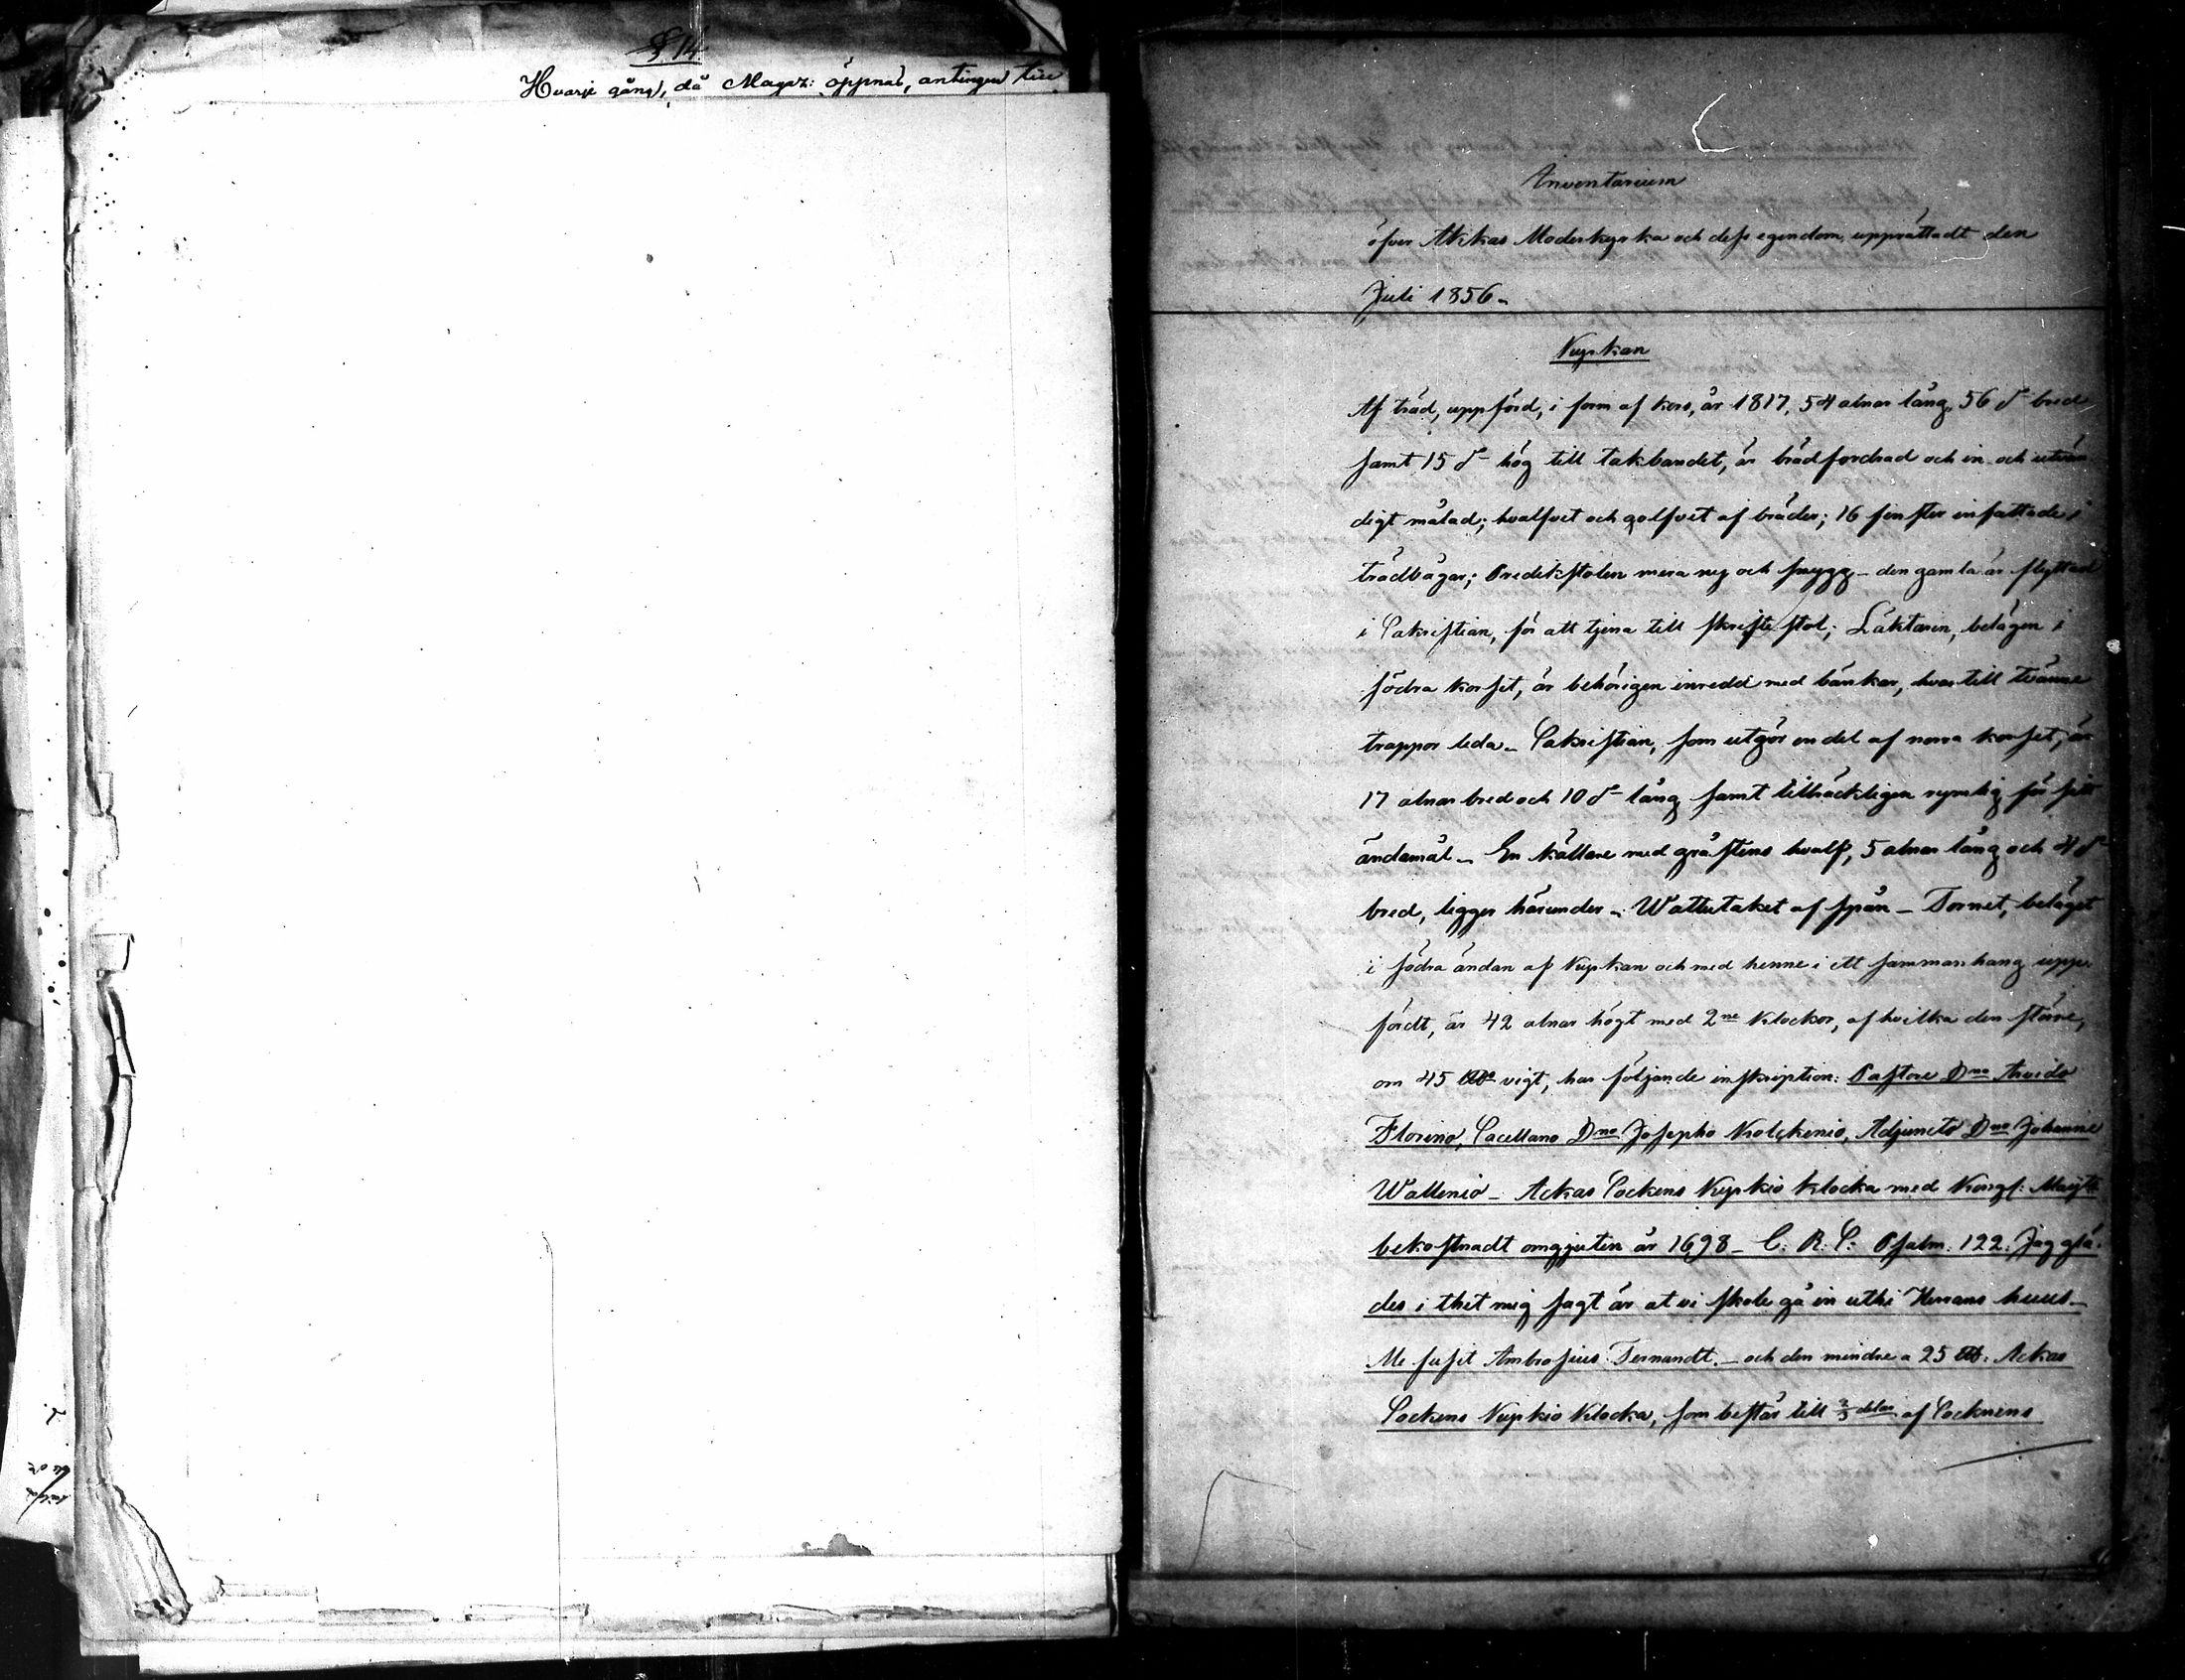 § 14
Hvarje gång, då Magaz: öppnas, antingen till
Inventarium
öfver Akkas Moderkyrka och dess egendom, upprättadt den
Juli 1856.
Kyrkan
Af träd, uppförd, i form af kors, år 1817, 54 alnar lång, 56 d:o bred
samt 15 d:o hög till takbandet, är brädfordrad och in- och utvän
digt målad; hvalfvet och golfvet af bräder; 16 fenster infattade i
trädbågar; Predikstolen mera ny och snygg – den gamla är flyttad
i Sakristian, för att tjena till skriftestol; Läktaren, belägen i
södra korset, är behörigen inredd med bänkar, hvartill tvänne
trappor leda – Sakristian, som utgör en del af norra korset, är
17 alnar bred och 10 d:o lång samt tillräckligen rymlig för sitt
ändamål – En källare med gråstens hvalf, 5 alnar lång och 4 d:o
bred, ligger härunder – Wattutaket af spån – Tornet, beläget
i södra ändan af Kyrkan och med henne i ett sammanhang upp-
fördt, är 42 alnar högt med 2ne klockor, af hvilka den större,
om 45 vigt, har följande inskription: Pastore Dno Arvido
Florino, Sacellano Dno Josepho Krolckenio, Adjuncto Dno Johanne
Wallenio – Ackas Sockens Kyrkio klocka med Kongl: Maijts
bekostnadt omgjuten år 1698 – C. R. S: Psalm. 122. Jag glä-
des i thet mig sagt är at vi skole gå in uthi Herrans huus –
Me fusit Ambrosius Fernandt. – och den mindre a 25 Ackas
Sockens Kyrkio Klocka, som består till 2/3 delar af Socknens